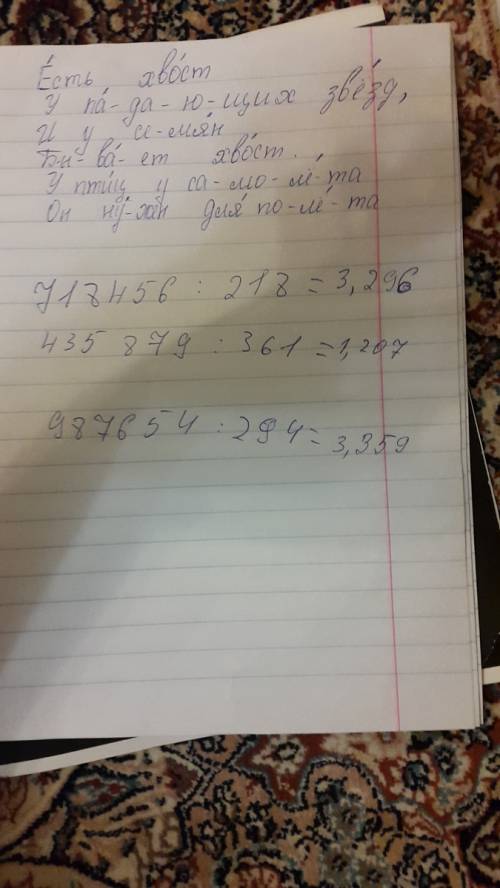 Е́сть хво́ст
У па́-да-ю-щих звёзд,
И у се-мя́н
Бы-ва́-ет хво́ст.
У пти́ц у са-мо-лё-та
Он ну́-жен для по-лё-та
718456 : 218 = 3,296
435 879 : 361 = 1,207
987654 : 294 = 3,359